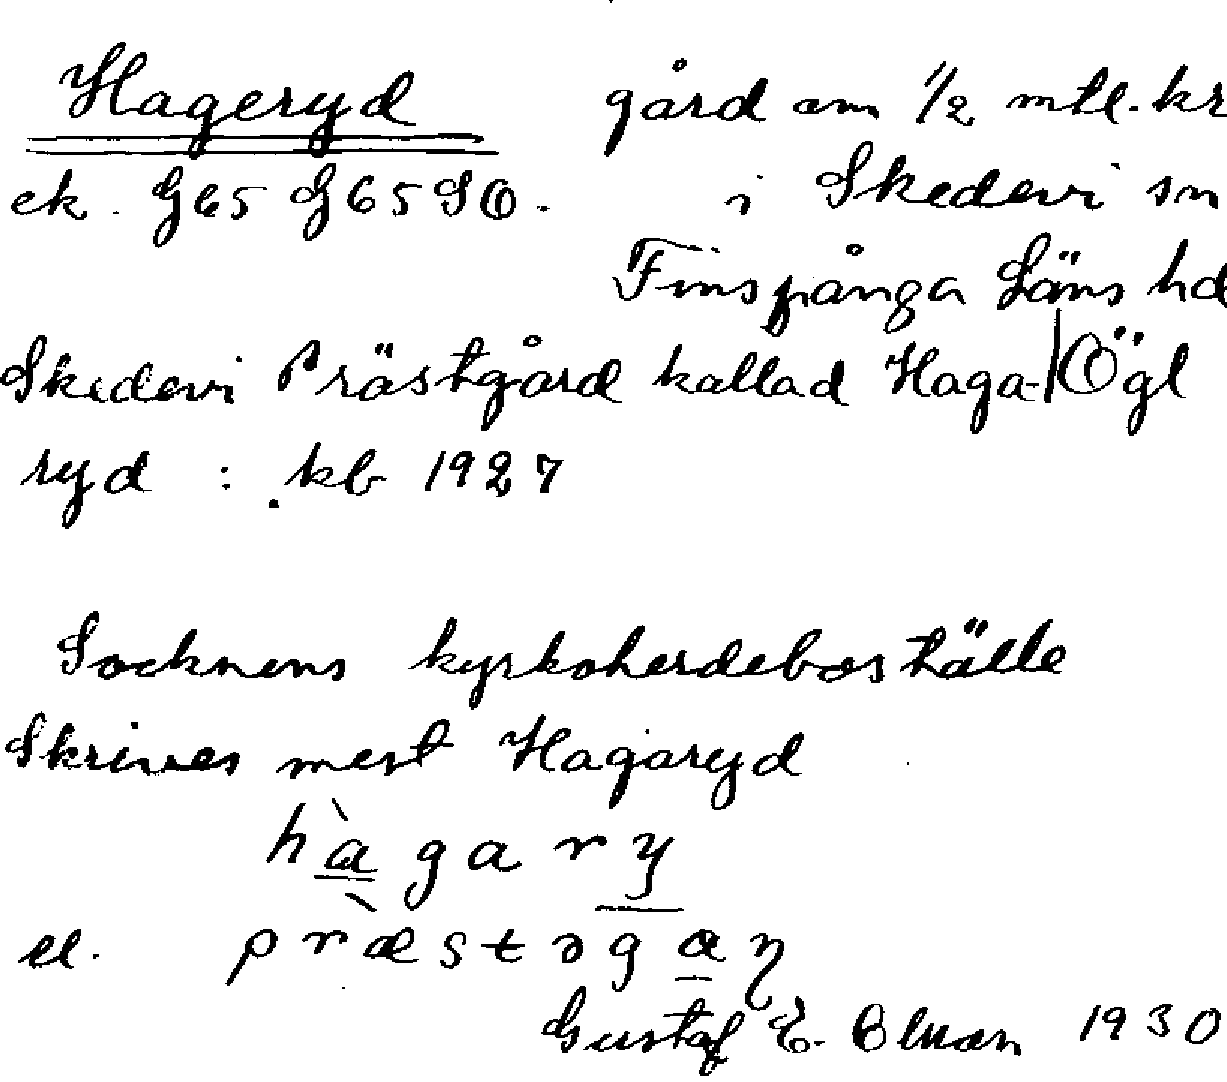 Hageryd gård om 1/2 mtl. kr
ek. G65 G65SO. i Skedevi sn
Finspånga Läns hd
Skedevi Prästgård kallad Haga- | Ögl
ryd : kb 1927
Socknens kyrkoherdeboställe
Skrives mest Hagaryd
hàgary
el. præ̀stəgaɳ
Gustaf E. 1930